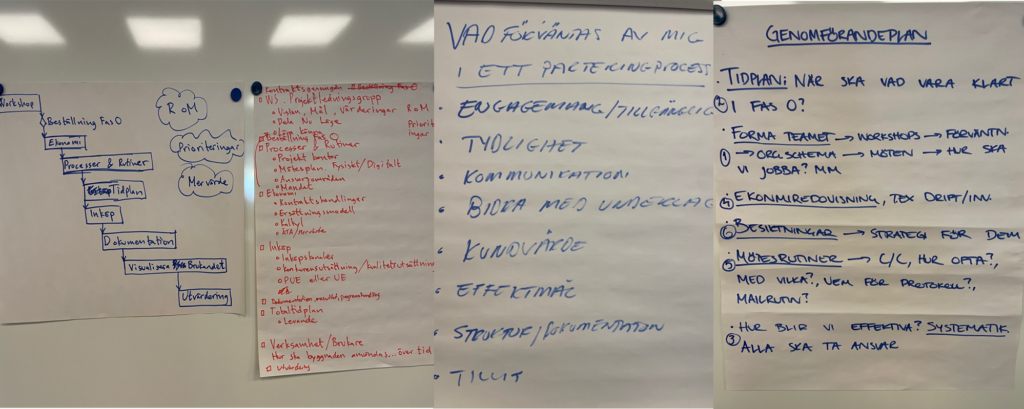 Workshop
Beställning Fas 0
Ekonomi
Processer & Rutiner
Tidplan
Inköp
Dokumentation
Visualisera Brukandet
Utvärdering
ROM
Prioriteringar
Mervärde
Kontraktsgenomgång Beställning Fas 0
WS. Projektledningsgrupp
Vision, Mål, Värderingar ROM
Dela Nu Läge Priorit
ingar
Beställning Fas 0
Processer & Rutiner
Projekt kontor
Mötesplan Fysiskt/Digitalt
Ansvarsområden
Mandat
Ekonomi
Kontraktshandlingar
Ersättningsmodell
Kalkyl
ÄTA/Mervärde
Inköp
Inköpskanaler
konkurrensutsättning/kvalitetsutsättning
PUE eller UE
Totaltidplan
Levande
Verksamhet/Brukare
Hur ska byggnaden användas... över tid
Utvärdering
VAD FÖRVÄNTAS AV MIG
I ETT PARTERINGPROCESS
• ENGAGEMANG/TILLGÄNGLIG
• TYDLIGHET
• KOMMUNIKATION
• BIDRA MED UNDERLAG
• KUNDVÄRDE
• EFFEKTMÅL
• STRUKTUR/DOKUMENTATION
• TILLIT
GENOMFÖRANDEPLAN
• TIDPLAN: NÄR SKA VAD VARA KLART
② I FAS 0?
• FORMA TEAMET → WORKSHOPS → FÖRVÄNTN.
① → ORG.SCHEMA → MÖTEN → HUR SKA
VI JOBBA? MM
④ EKONOMIREDOVISNING, TEX DRIFT/INV.
⑥ BESIKTNINGAR → STRATEGI FÖR DEM
⑤ MÖTESRUTINER → C/C, HUR OFTA?,
MED VILKA?, VEM FÖR PROTOKOLL?,
MAILRUTIN?
• HUR BLIR VI EFFEKTIVA? SYSTEMATIK
③ ALLA SKA TA ANSVAR